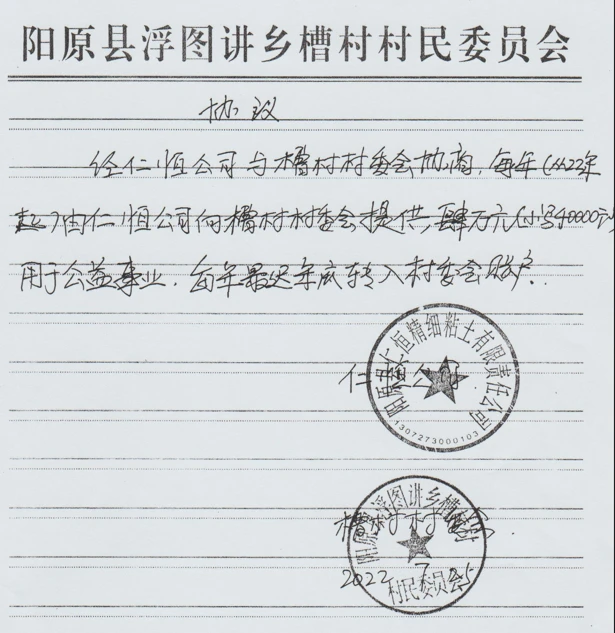 阳原县浮图讲乡槽村村民委员会
协议
经仁恒公司与槽村村委会协商,每年(从22年
起)由仁恒公司向槽村村委会提供,肆万元(小写40000元)
用于公益事业.每年最迟年底转入村委会账户.
仁恒公司
阳原县仁恒精细粘土有限责任公司
1307273000103
槽村村委会
阳原县浮图讲乡槽村
村民委员会
2022 7 25